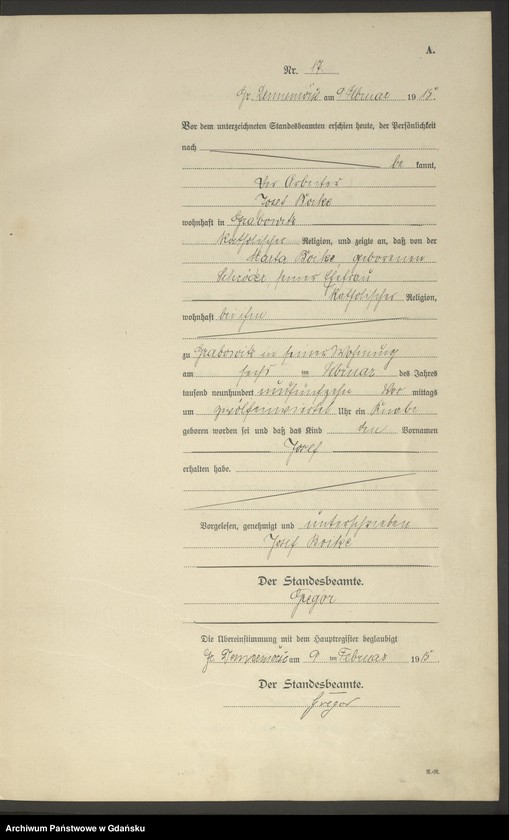 A.
Nr. 17.
Gr. am 9 Februar 1915.
Vor dem unterzeichneten Standesbeamten erschien heute, der Persönlichkeit
nach
be kannt,
Der Arbeiter
Josef Boike
wohnhaft in Grabowitz
katholischer Religion, und zeigte an, daß von der
Marta Boike, geborenen
Schröder, seiner Ehefrau
katholischer Religion,
wohnhaft bei ihm
zu Grabowitz in seiner Wohnung
am sechs ten Februar des Jahres
tausend neunhundert und fünfzehn Vor mittags
um Uhr ein Knabe
geboren worden sei und daß das Kind den Vornamen
Josef
erhalten habe.
Vorgelesen, genehmigt und unterschrieben
Josef Boike
Der Standesbeamte.
Gregor
Die Übereinstimmung mit dem Hauptregister beglaubigt
Gr. am 9 ten Februar 1915.
Der Standesbeamte.
Gregor
Archiwum Państwowe w Gdańsku